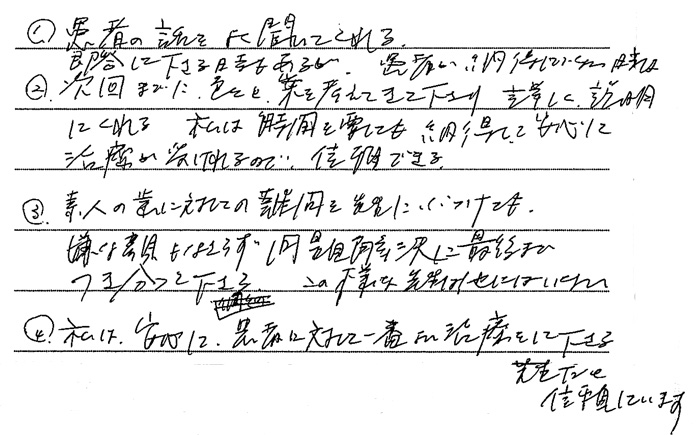 ① 患者の話をよく聞いてくれる。
即答して下さる時もあるが、患者が納得していない時は
② 次回までに、きちんと案を考えてきて下さり 詳しく説明
してくれる 私は時間を要しても納得して安心して
治療が受けれるので、信頼できる。
③ 素人の歯に対しての難問を先生にぶつけても、
嫌な顔もなさらず 1問1問 順次に最後まで
つき合って下さる。この様な先生は他にはいない
④ 私は、安心して、患者に対して一番よい治療をして下さる
先生だと
信頼しています